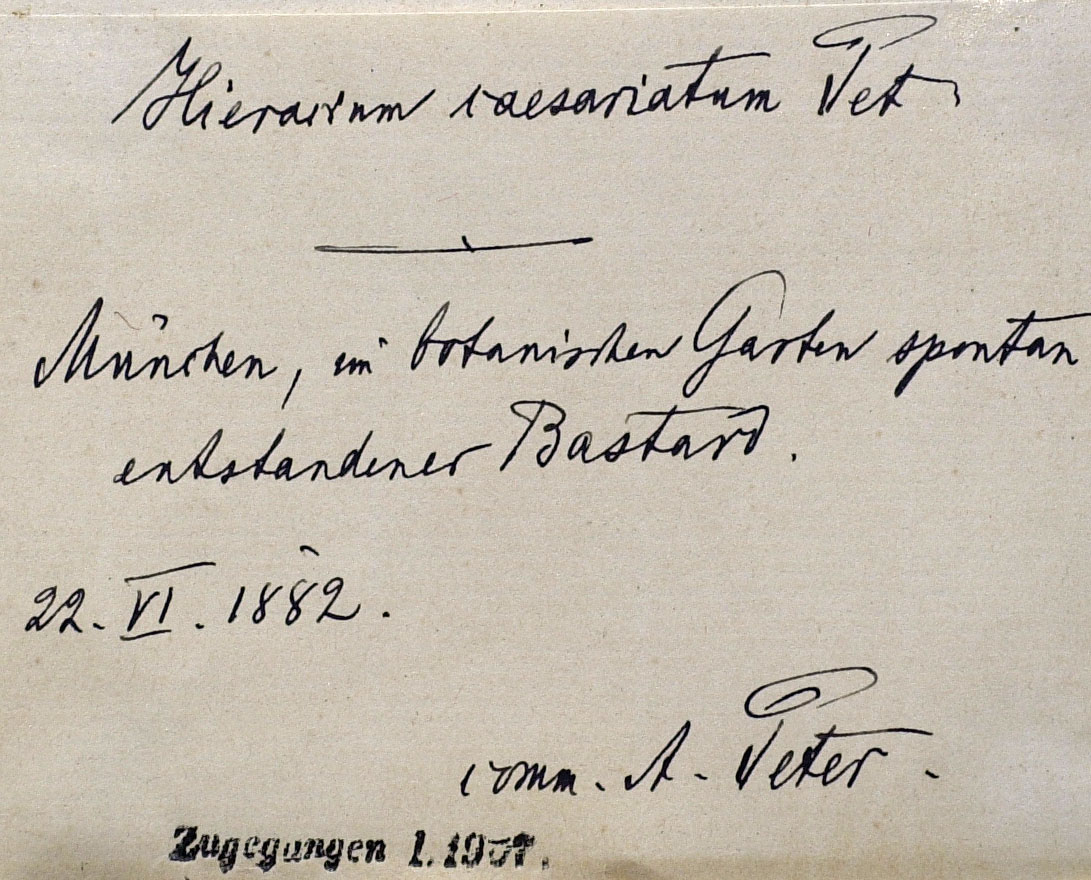 Hieracium caesariatum Pet.
München, im botanischen Garten spontan
entstandener Bastard.
22. VI. 1882.
comm. A. Peter.
Zugegangen 1.